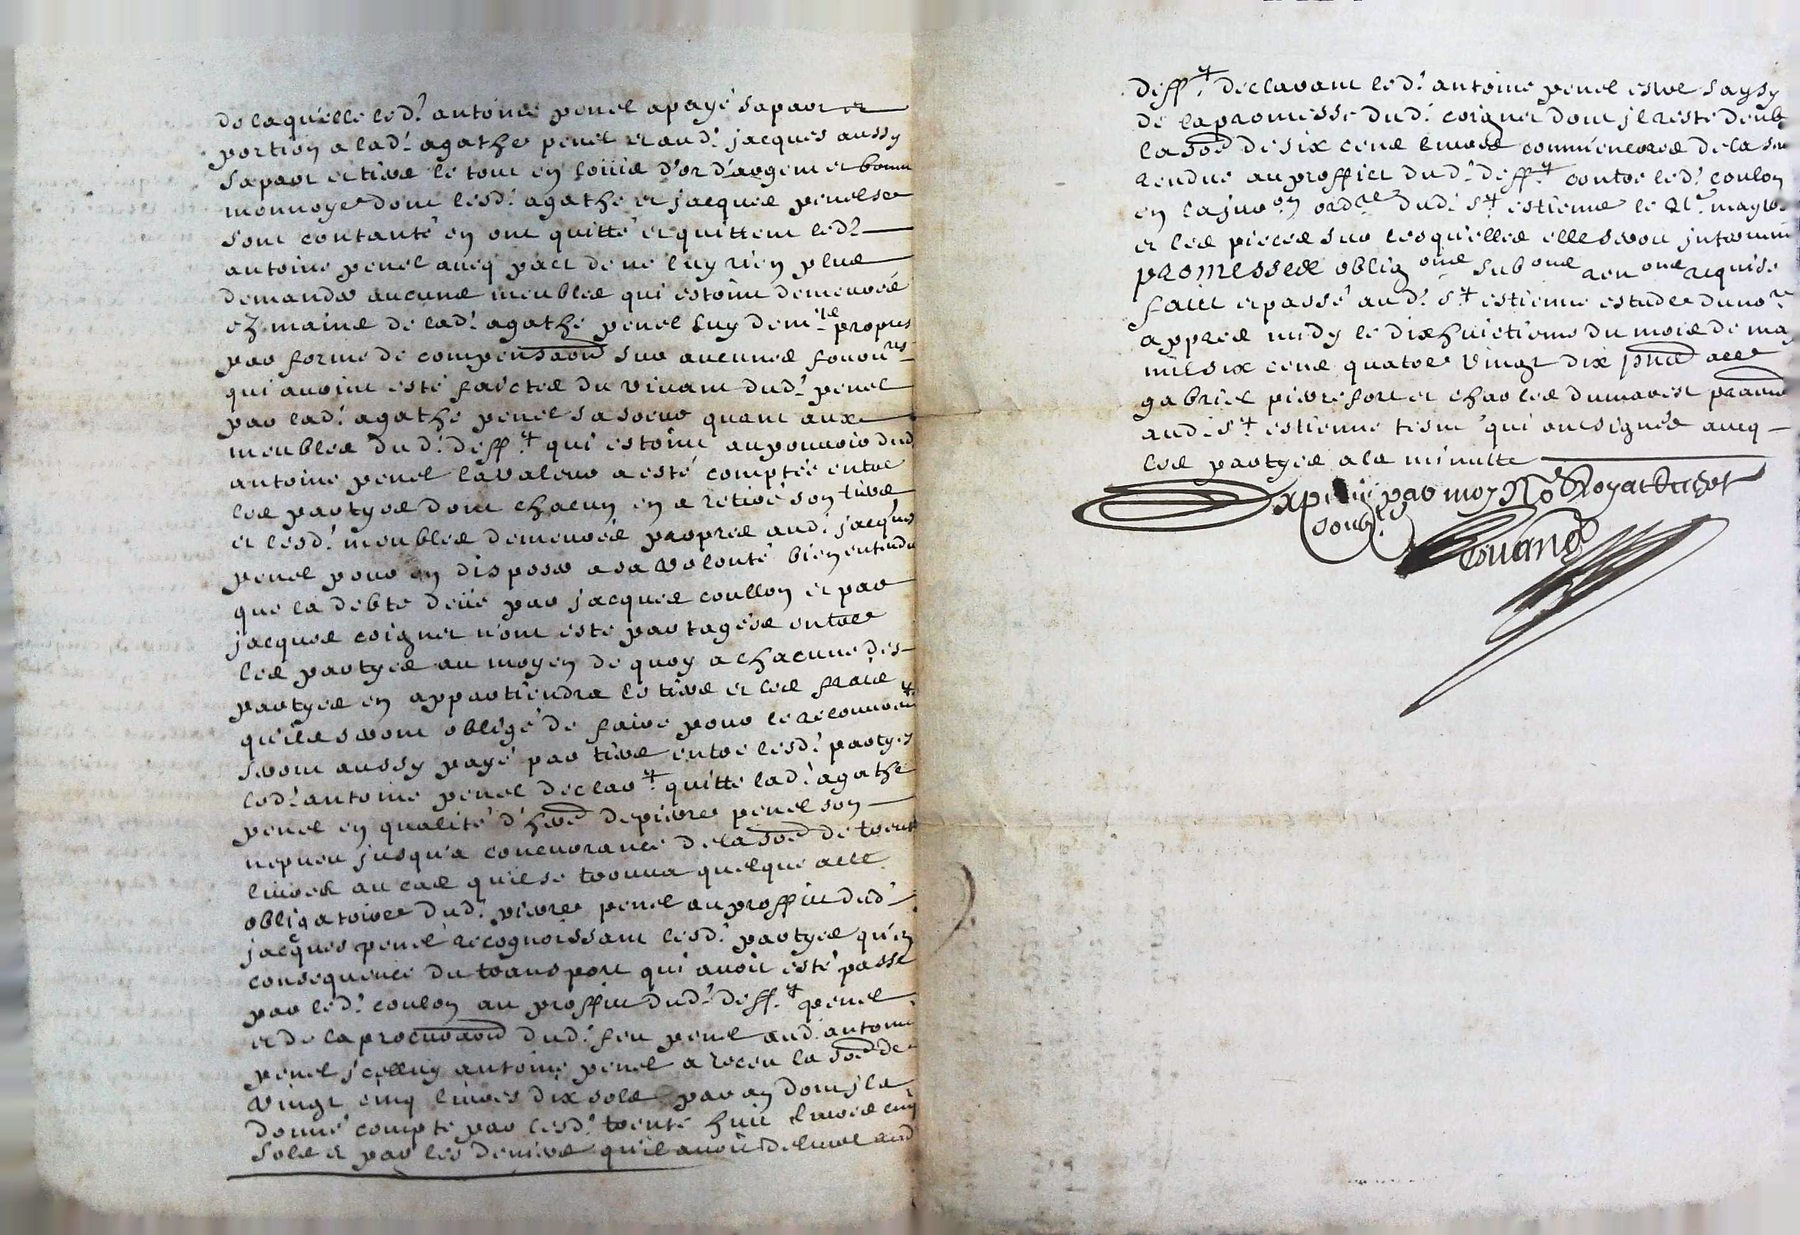 de laquelle led.t antoine penel a payé sa part et
portion a lad.t agathe penel et aud.t jacques aussy
sa part et tiers le tout en louis d'or d'argent et bonne
monnoye dont lesd.t agathe et jacques penel se
sont contanté en ont quitté et quittent led.t
antoine penel avecq pact de ne luy rien plus
demander aucuns meubles qui estoint demeurés
ez mains de lad.t agathe penel luy dem.t propres
par forme de compensaon sur aucunes fournr.es
qui avoint esté faictes du vivant dud.t penel
par lad.t agathe penel sa soeur quant aux
meubles dud.t deff.t qui estoint au pouvoir dud
antoine penel la valeur a esté comptée entre
les partyes dont chacun en a retiré son tiers
et lesd.t meubles demeurés propres aud.t jacques
penel pour en disposer a sa volonté bien entendu
que la debte deüe par jacques coullon et par
jacques coigner n'ont esté partagés entre
les partyes au moyen de quoy a chacune des
partyes en appartiendra le tiers et les frais
qu'ils seront obligé de faire pour le recouvrem.t
seront aussy payé par tiers entre lesd.t partyes
led.t antoine penel declar.t quitte lad.t agathe
penel en qualité d'hered de pierre penel son
nepveu jusqu'a concurrance de la some de trente
livres au cas qu'il se trouva quelque acte
obligatoire dud.t pierre penel au proffit dud.t
jacques penel recognoissant lesd.t partyes qu'en
consequence du transport qui avoit esté passé
par led.t coulon au proffit dud.t deff.t penel
et de la procuraon dud.t feu penel aud.t antoine
penel jcelluy antoine penel a receu la some de
vingt cinq livres dix sols par an dont jl a
donné compte par lesd.t trente huit livres cinq
sols et par les deniers qu'il avoit delivré aud
deff.t declarant led.t antoine penel estre saysy
de la promesse dud.t coigner dont jl reste deub
la some de six cens livres comm' encores de la sen
rendue au proffict dud.t deff.t contre led.t coulon
en la jur.on ord.re dud.t s.t estienne le 21.e may
et les pieces sur lesquelles elle seroit jntervenue
promesses oblig.ons sub.ons ren.ons requises
faict et passé aud.t s.t estienne estude du no.re
appres midy le dixhuictieme du mois de may
mil six cens quatre vingt dix pnts
gabriel pierrefort et charles dumarest praticiens
aud.t s.t estienne tesm. qui ont signés avecq
les partyes a la minutte
expedié par moy No.re Royal
soub.né